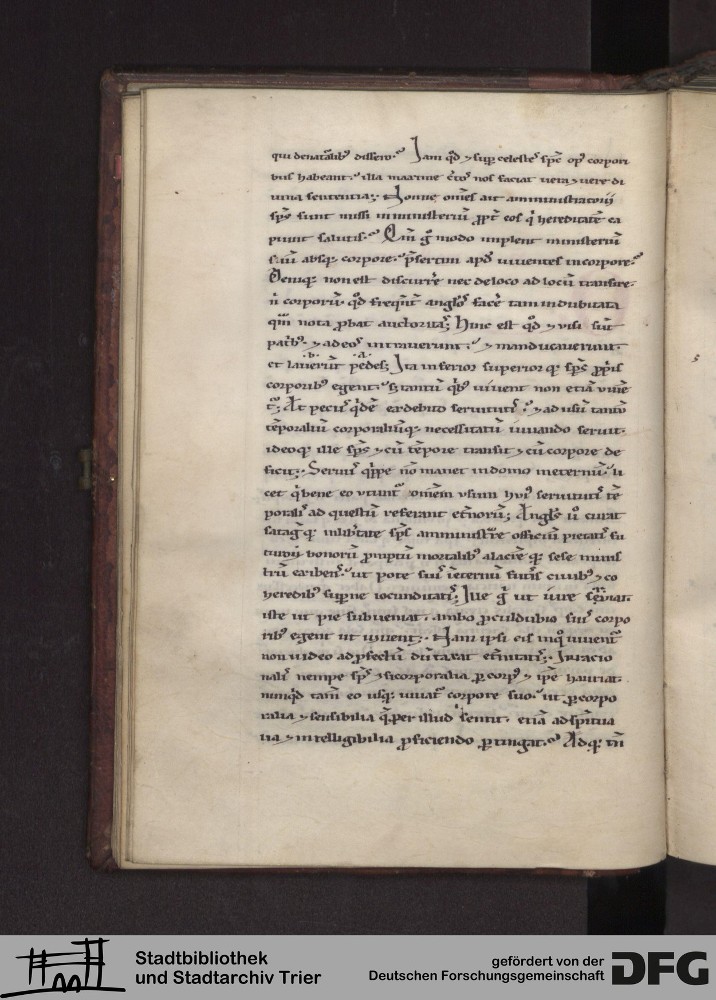 qui denatalib⁹ dissero. Iam qđ ⁊ suꝑ celestes sp̄c op⁹ corpori
bus habeant. illa maxime c̄tos nos faciat uera ⁊ uere di
uina sententia; Nonne om̄es ait amministratorii
sp̄s sunt missi inministeriū ꝓpt̄ eos q̇ hereditatē ca
piunt salutis. Qm̄ g̊ modo implent ministeriū
suū absq; corpore. p̄sertim apđ uiuentes incorpore.
Deniq; non est discurre nec deloco ad locū transire.
n̄ corporū. qđ freqn̄t anglos facē tam indubitata
qm̄ nota ꝓbat auctoritas; Hinc est qđ ⁊ uisi sūt
patrib⁹. ⁊ adeos intrauerunt. ⁊ manducauerunt.
et lauerūt pedes; Ita inferior superiorq; sp̄s ꝓpriis
corporib⁹ egent. s; tantū qb⁹ uiuent non etiā viuē
t̄; At pecus qdē exdebito seruitutis. ⁊ adusū tantū
tēporaliū corporaliūq; necessitatū iuuando seruit.
ideoq; ille sp̄s ⁊ cū tēpore transit ⁊ cū corpore de
ficit; Seruus qppe n̄ manet indomo ineternū. li
cet q̇ bene eo vtunt om̄em vsum hui⁹ seruitutis tē
poralis ad questū referant et̄norū; Angls ū curat
satagq; inlibtate sp̄s amministrare officiū pietatis fu
turoꝝ bonorū promptū mortalib⁹ alacrēq; sese minis
trū exibens. ut pote suis ineternū futis ciuib⁹ ⁊ co
heredib⁹ suꝑne iocunditatis; Ille g̊ ut iure seruiat.
iste ut pie subueniat. ambo ꝓculdubio suis corpo
rib⁹ egent ut iuuent; Nam ipsi eis inq̇ uiuent
non uideo adꝓfectū dūtaxat et̄nitatis; Irracio
nalis nempe sp̄s ⁊ sicorporalia ꝑ corp⁹ ⁊ ip̄e hauriat.
nunqd tam̄ eo usq; iuuat corpore suo. ut ꝑ corpo
ralia ⁊ sensibilia q̄ per illud sentit. etiā adspiritua
lia ⁊ intelligibilia ꝓficiendo ꝑtingat. Adq; tn̄
Stadtbibliothek
und Stadtarchiv Trier
gefördert von der
Deutschen Forschungsgemeinschaft
DFG